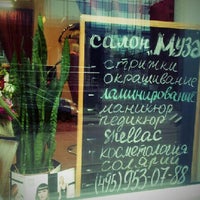 салон Муза
стрижки
окрашивание
ламинирование
маникюр
педикюр
Shellac
косметология
солярий
(495)953-07-88